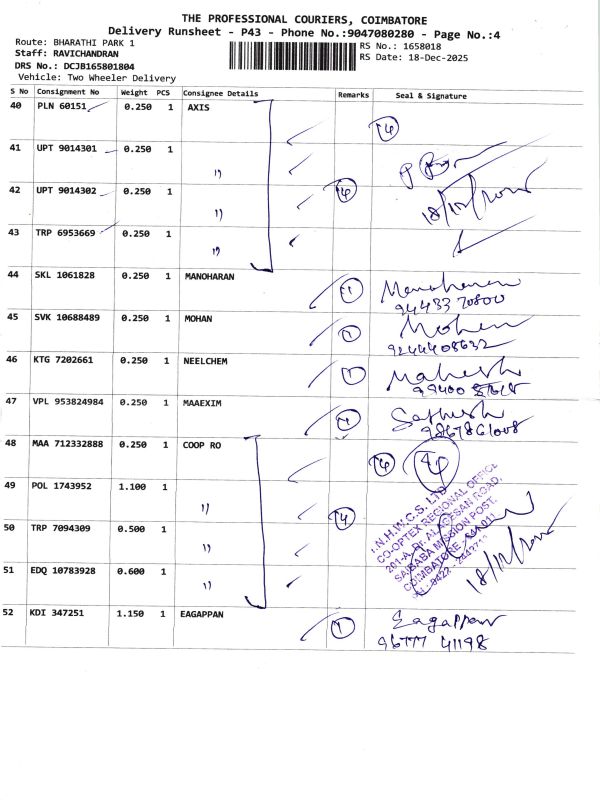 THE PROFESSIONAL COURIERS, COIMBATORE
Delivery Runsheet - P43 - Phone No.:9047080280 - Page No.:4
Route: BHARATHI PARK 1
RS No.: 1658018
Staff: RAVICHANDRAN
RS Date: 18-Dec-2025
DRS No.: DCJB165801804
Vehicle: Two Wheeler Delivery
S No Consignment No Weight PCS Consignee Details Remarks Seal & Signature
40 PLN 60151 0.250 1 AXIS
41 UPT 9014301 0.250 1 ״)
42 UPT 9014302 0.250 1 ״)
18/12/2025
43 TRP 6953669 0.250 1 ״)
44 SKL 1061828 0.250 1 MANOHARAN 1 Manoharan
94433 70800
45 SVK 10688489 0.250 1 MOHAN 1 Mohan
9244408632
46 KTG 7202661 0.250 1 NEELCHEM 1 Mahesh
99400
47 VPL 953824984 0.250 1 MAAEXIM 1 Sathish
9867861008
48 MAA 712332888 0.250 1 COOP RO
49 POL 1743952 1.100 1 ״)
50 TRP 7094309 0.500 1 ״)
51 EDQ 10783928 0.600 1 ״)
I.N.H.W.C.S. LTD
CO-OPTEX REGIONAL OFFICE
201-A, Dr. ALAGESAN ROAD,
SAIBABA MISSION POST,
COIMBATORE - 641011
18/12/2025
52 KDI 347251 1.150 1 EAGAPPAN 1 Eagappan
96777 41198